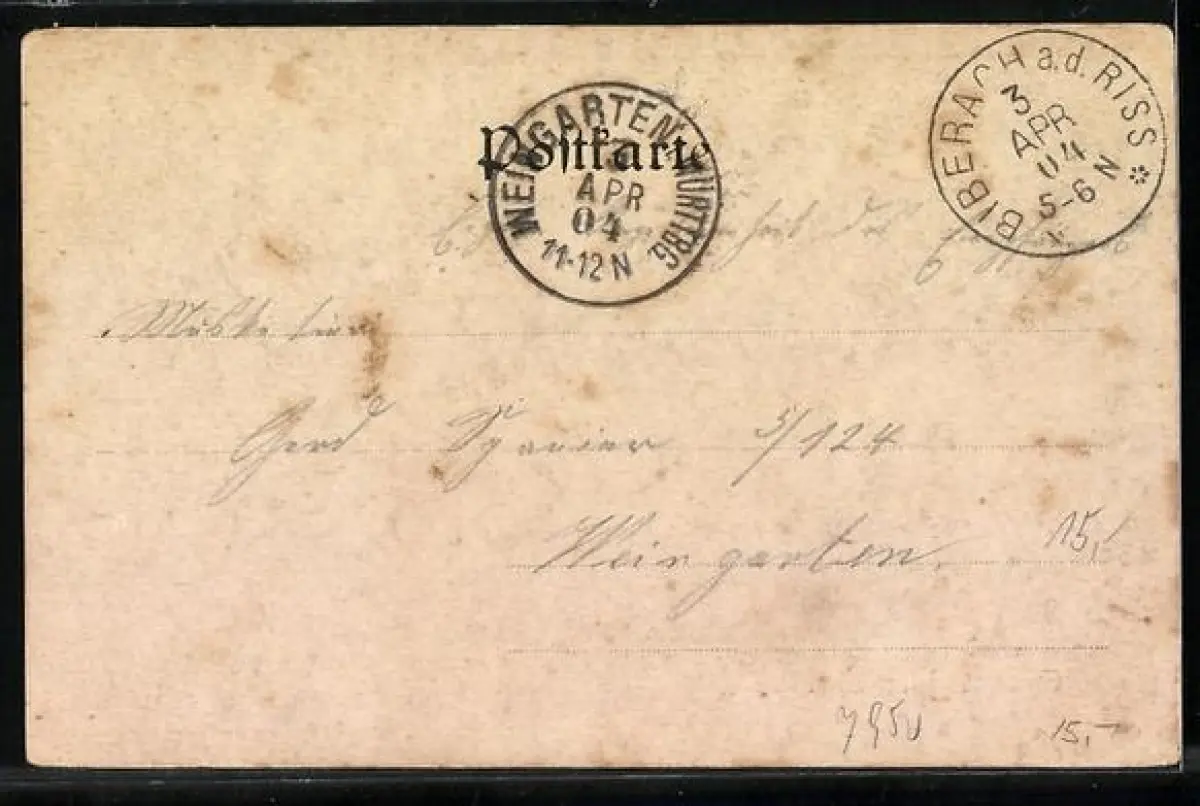 Postkarte
WEINGARTEN WÜRTTBG.
APR
04
11-12 N
BIBERACH a.d. RISS
3
APR
04
5-6 N
Musketier
Gerd Spanier 5/124
Weingarten.
15,-
7950
15,-